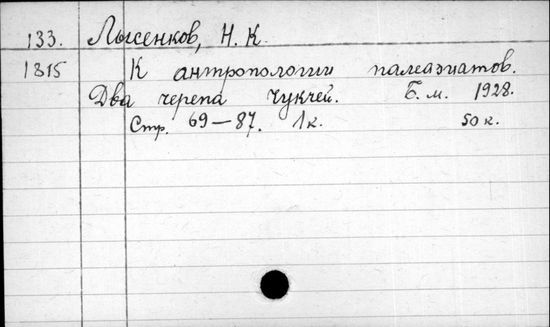 133. Лысенков, Н. К.
1815 К антропологии палеазиатов.
Два черепа чукчей. Б. м. 1928.
Стр. 69—87. 1 к. 50 к.